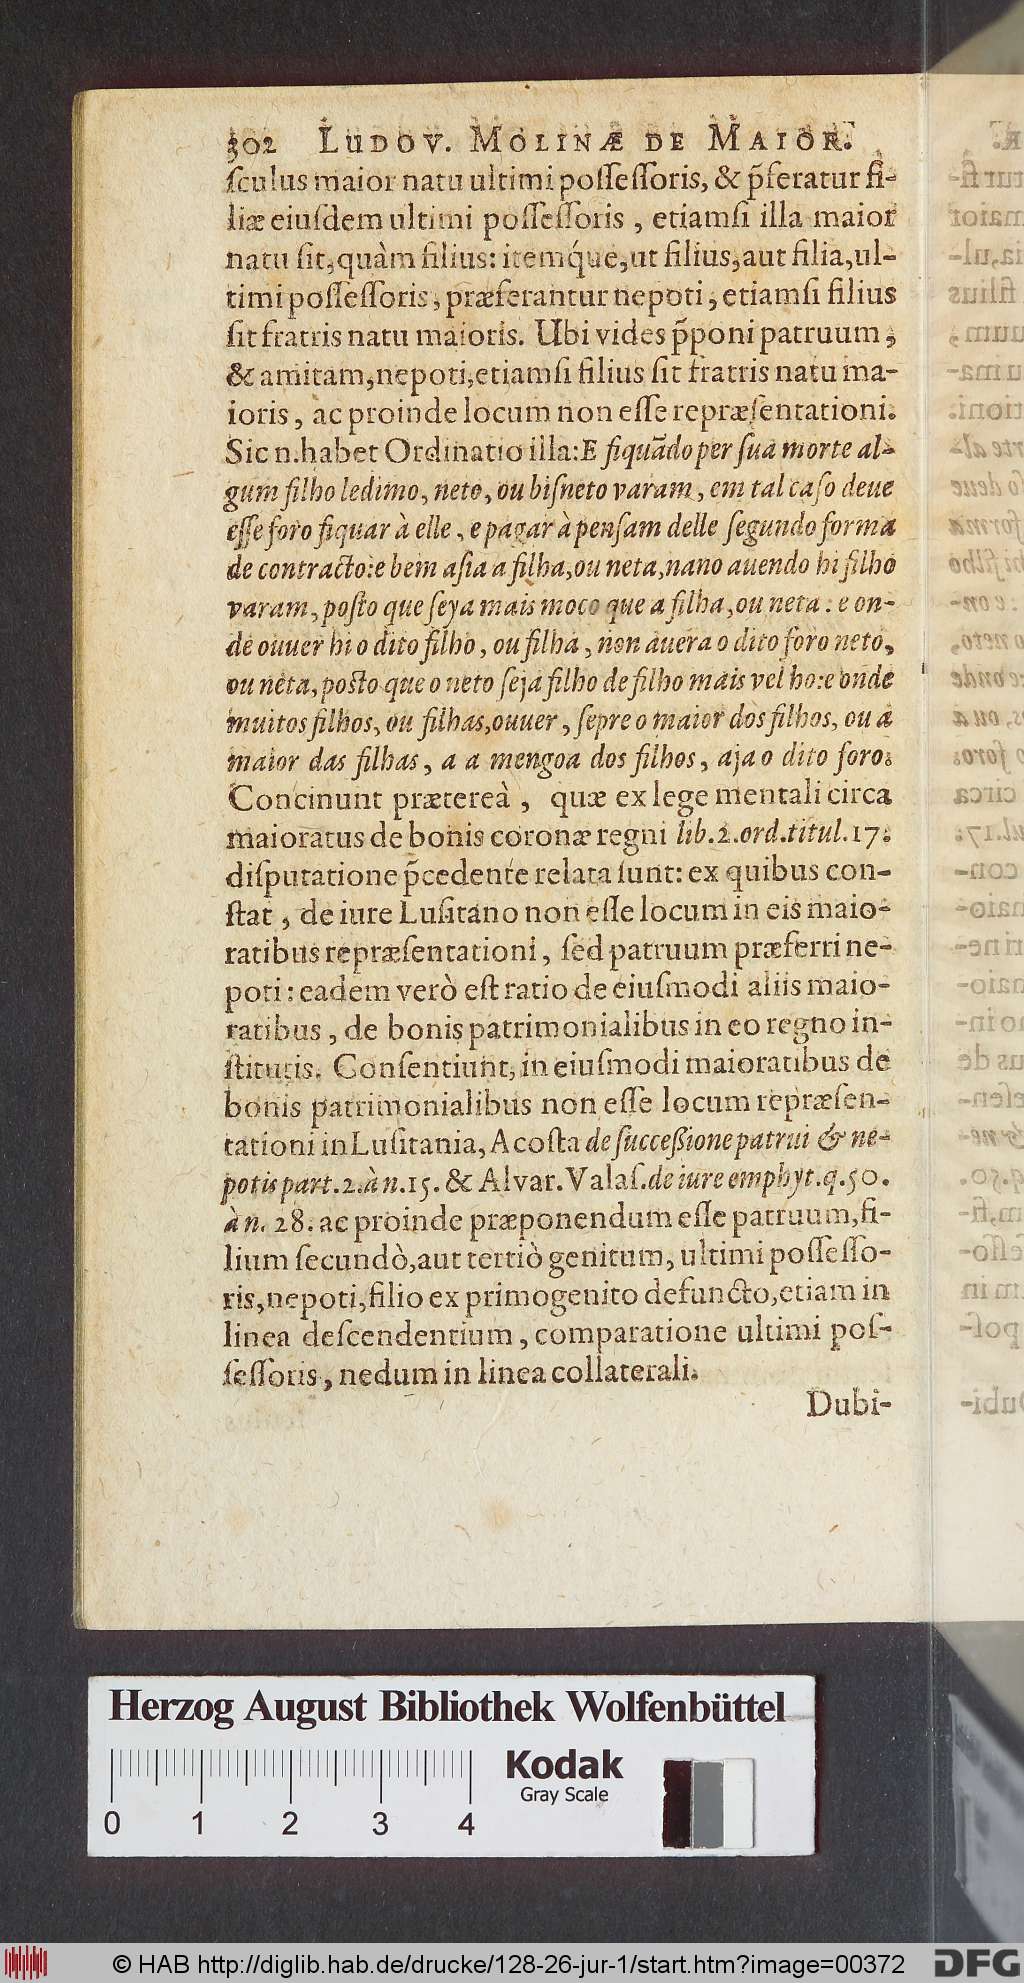 302 LUDOV. MOLINÆ DE MAIOR.
ſculus maior natu ultimi poſſeſſoris, & p̃feratur fi-
liæ eiuſdem ultimi poſſeſſoris, etiamſi illa maior
natu ſit, quàm filius: itemq́ue, ut filius, aut filia, ul-
timi poſſeſſoris, præferantur nepoti, etiamſi filius
ſit fratris natu maioris. Ubi vides p̃poni patruum,
& amitam, nepoti, etiamſi filius ſit fratris natu ma-
ioris, ac proinde locum non eſſe repræſentationi.
Sic n. habet Ordinatio illa: E fiquãdo per ſua morte al-
gum filho ledimo, neto, ou biſneto varam, em tal caſo deue
eſſe foro fiquar à elle, e pagar à penſam delle ſegundo forma
de contracto: e bem aſia a filha, ou neta, nano auendo hi filho
varam, poſto que ſeya mais moco que a filha, ou neta: e on-
de ouuer hi o dito filho, ou filha, non auera o dito foro neto,
ou neta, poſto que o neto ſeja filho de filho mais vel ho: e onde
muitos filhos, ou filhas, ouuer, ſepre o maior dos filhos, ou a
maior das filhas, a a mengoa dos filhos, aja o dito foro.
Concinunt prætereà, quæ ex lege mentali circa
maioratus de bonis coronæ regni lib. 2. ord. titul. 17:
diſputatione p̃cedente relata ſunt: ex quibus con-
ſtat, de iure Luſitano non eſſe locum in eis maio-
ratibus repræſentationi, ſed patruum præferri ne-
poti: eadem verò eſt ratio de eiuſmodi aliis maio-
ratibus, de bonis patrimonialibus in eo regno in-
ſtitutis. Conſentiunt, in eiuſmodi maioratibus de
bonis patrimonialibus non eſſe locum repræſen-
tationi in Luſitania, Acoſta de ſucceßione patrui & ne-
potis part. 2. à n. 15. & Alvar. Valaſ. de iure emphyt. q. 50.
à n. 28. ac proinde præponendum eſſe patruum, fi-
lium ſecundò, aut tertiò genitum, ultimi poſſeſſo-
ris, nepoti, filio ex primogenito defuncto, etiam in
linea deſcendentium, comparatione ultimi poſ-
ſeſſoris, nedum in linea collaterali.
Dubi-
Herzog August Bibliothek Wolfenbüttel
Kodak
Gray Scale
0 1 2 3 4
© HAB http://diglib.hab.de/drucke/128-26-jur-1/start.htm?image=00372
DFG